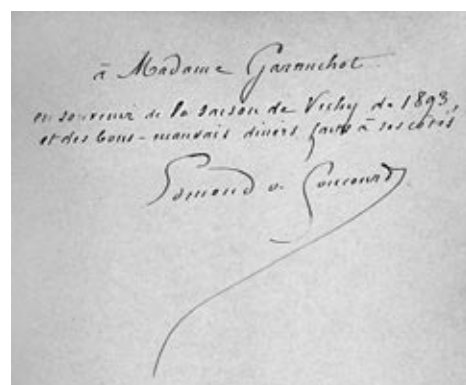 à Madame Garanchot
en souvenir de la saison de Vichy de 1893,
et des bons-mauvais diners faits à ses cotés
Edmond de Goncourt